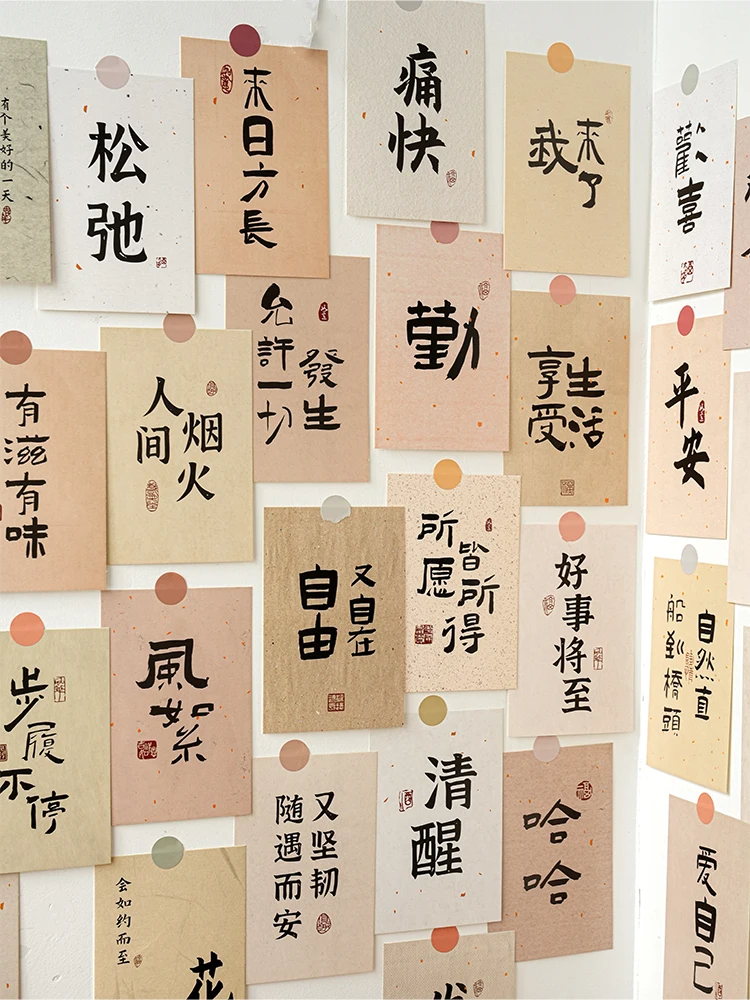 有个美好的一天
松弛
来日方長
痛快
我
来了
歡喜
允許一切
發生
勤
享受
生活
平安
有滋有味
人间
烟火
自由
又自在
所愿
皆所得
好事将至
船到橋頭
自然直
步履
不停
風絮
随遇而安
又坚韧
清醒
哈哈
爱自己
会如约而至
花